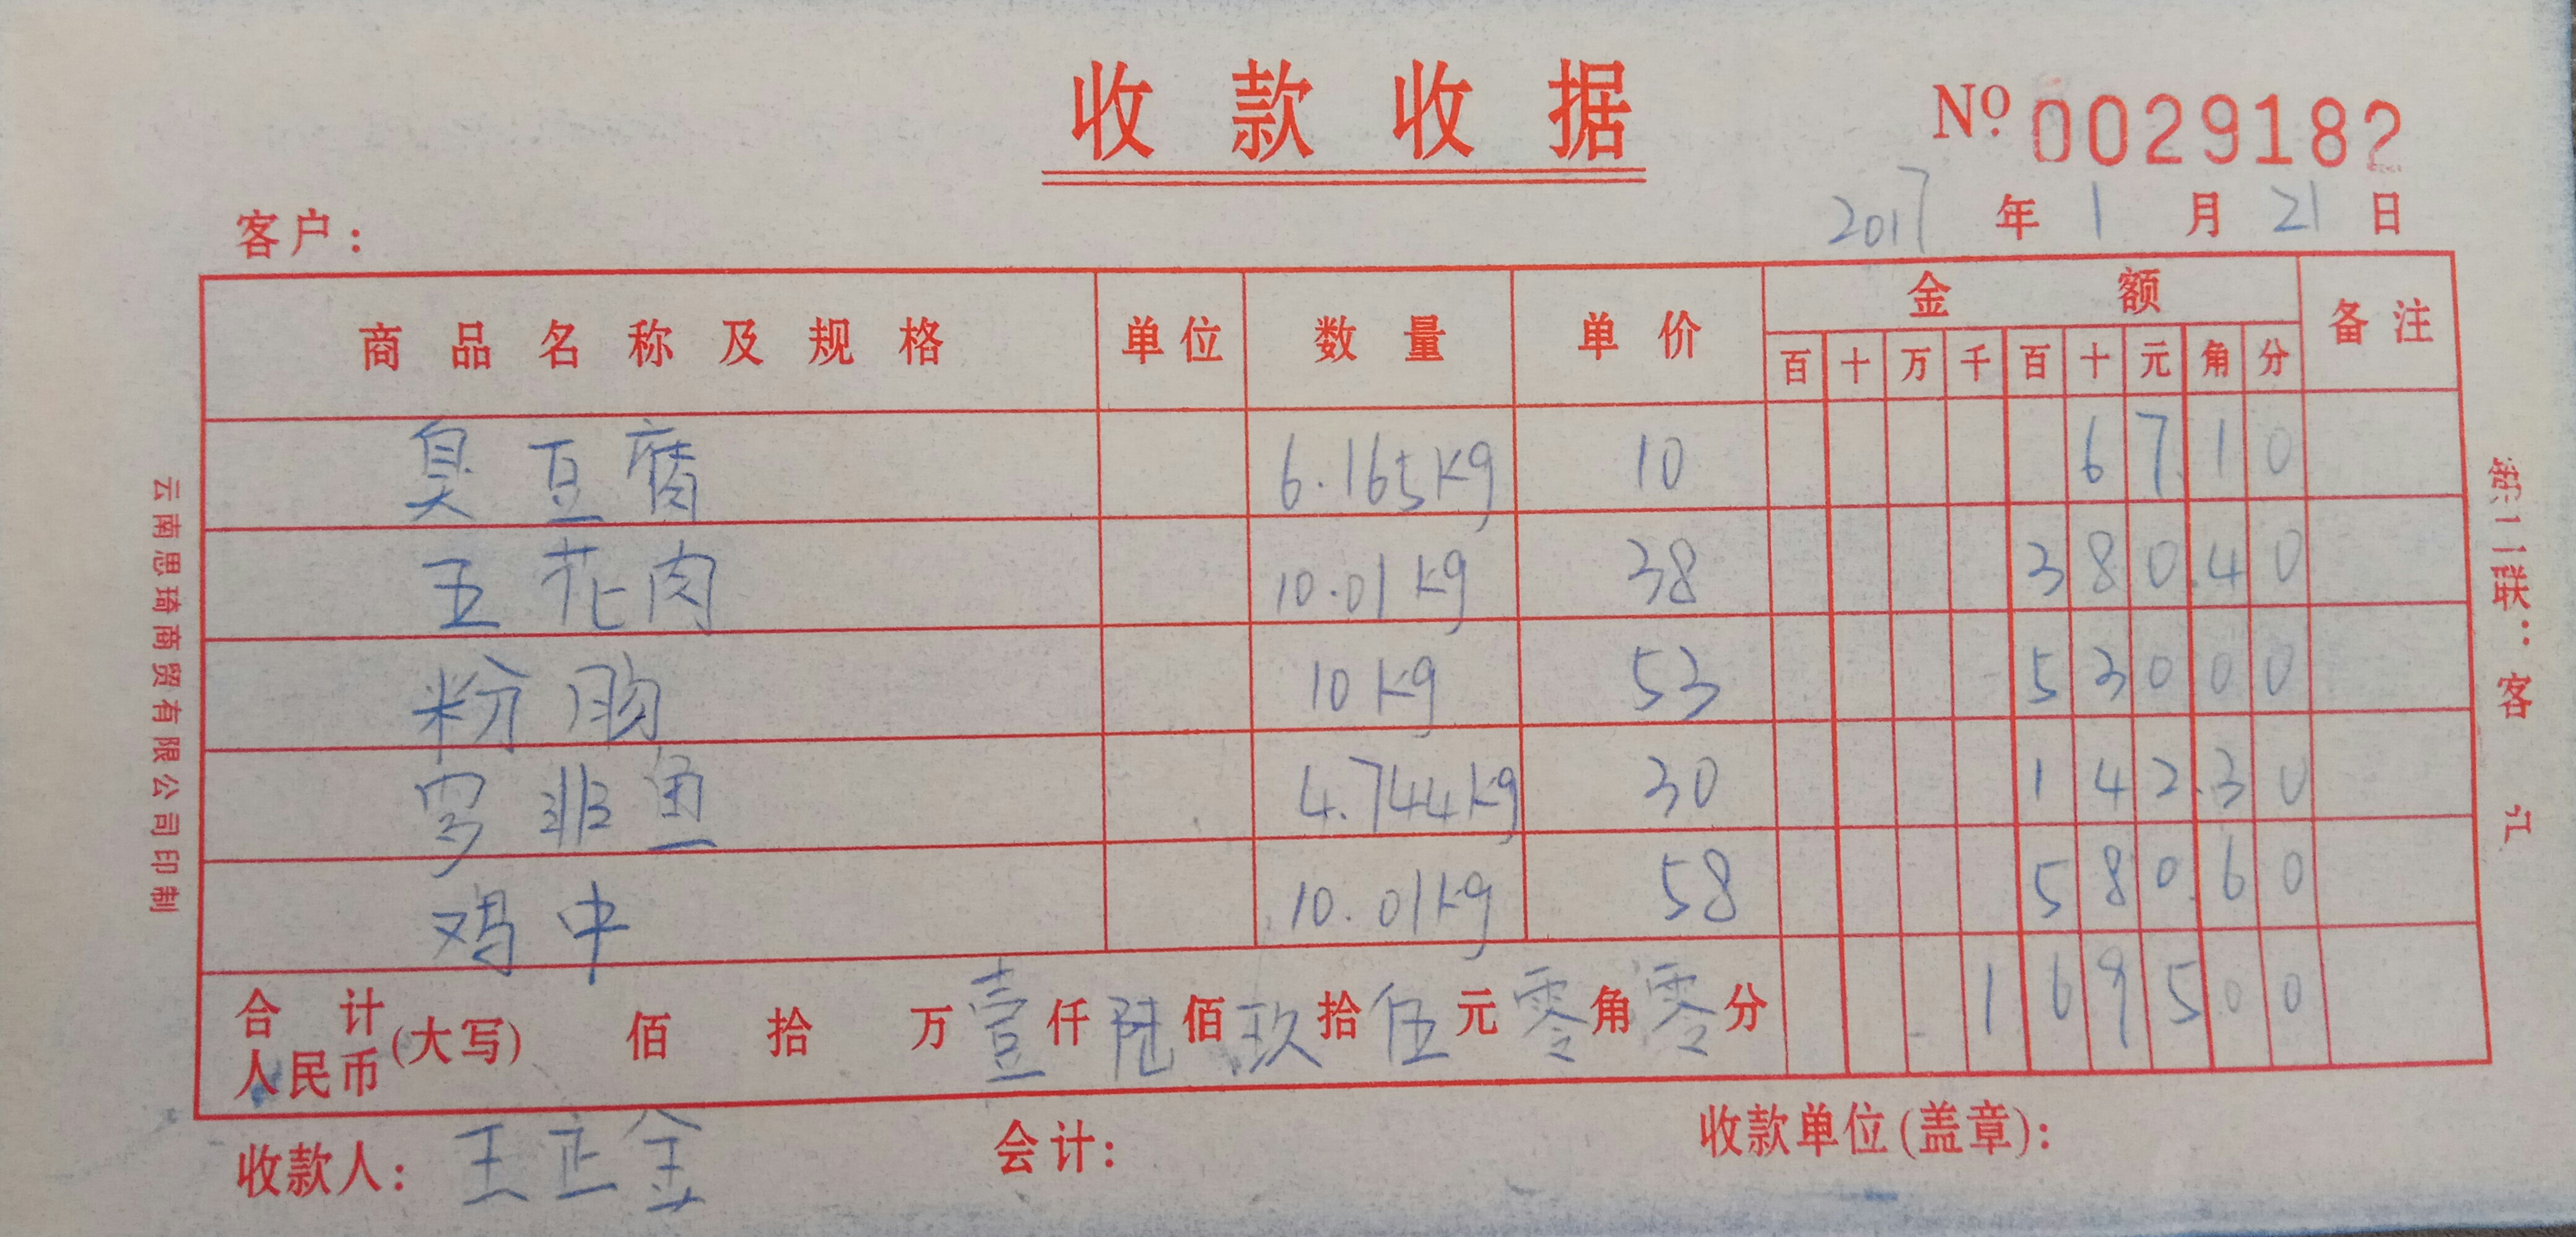 收款收据
№ 0029182
2017年1月21日
客户：
商品名称及规格 单位 数量 单价 金额 备注
百 十 万 千 百 十 元 角 分
臭豆腐 6.165kg 10 6 7 1 0
五花肉 10.01kg 38 3 8 0 4 0
粉肠 10kg 53 5 3 0 0 0
罗非鱼 4.744kg 30 1 4 2 3 0
鸡中 10.01kg 58 5 8 0 6 0
合计人民币(大写) 佰 拾 万壹仟陆佰玖拾伍元零角零分 1 6 9 5 0 0
收款人：王正金 会计： 收款单位(盖章)：
云南思琦商贸有限公司印制
第二联：客